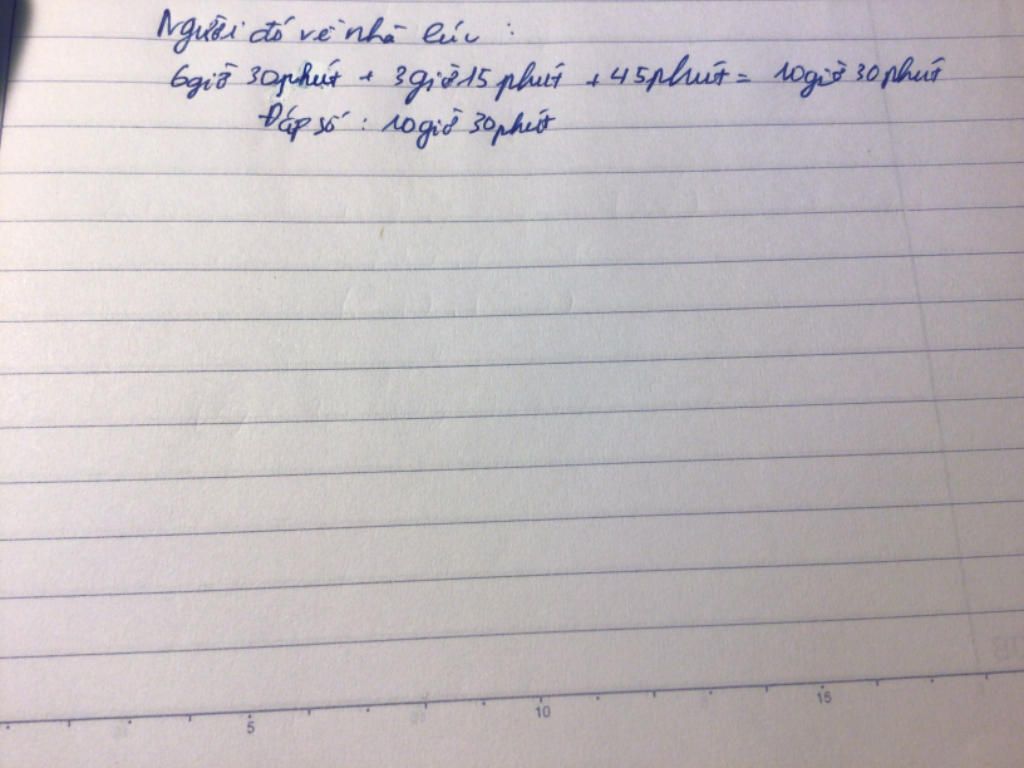 Người đó về nhà lúc :
6giờ 30phút + 3giờ15 phút + 45phút = 10giờ 30phút
Đáp số : 10giờ 30phút
5 10 15